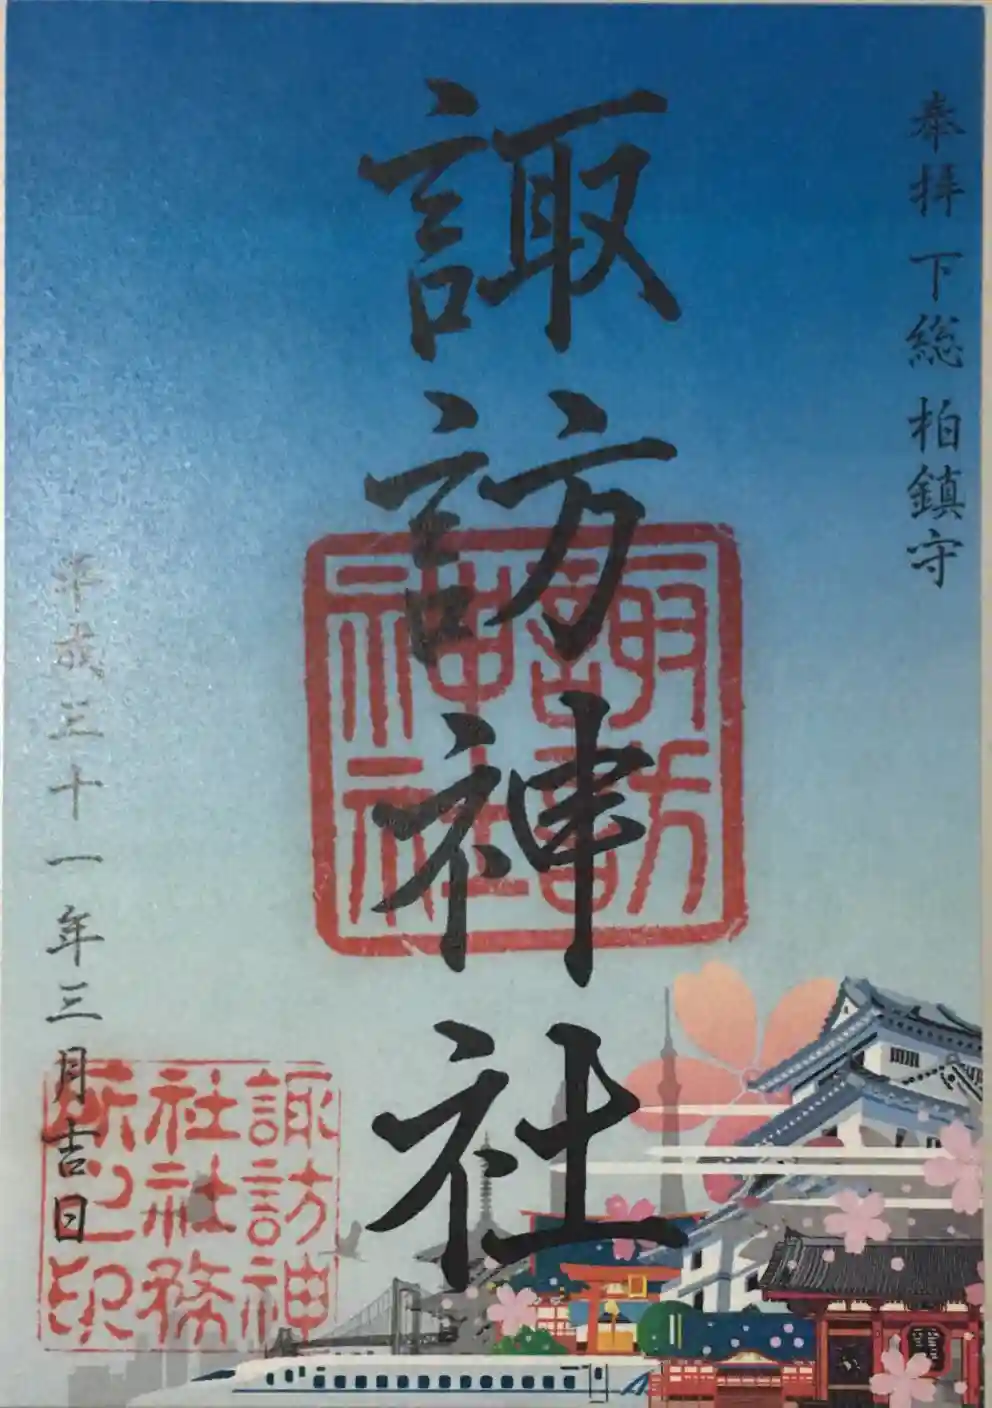 奉拝 下総 柏鎮守
諏訪神社
諏訪
神社
平成三十一年三月吉日
諏訪神
社社務
所之印